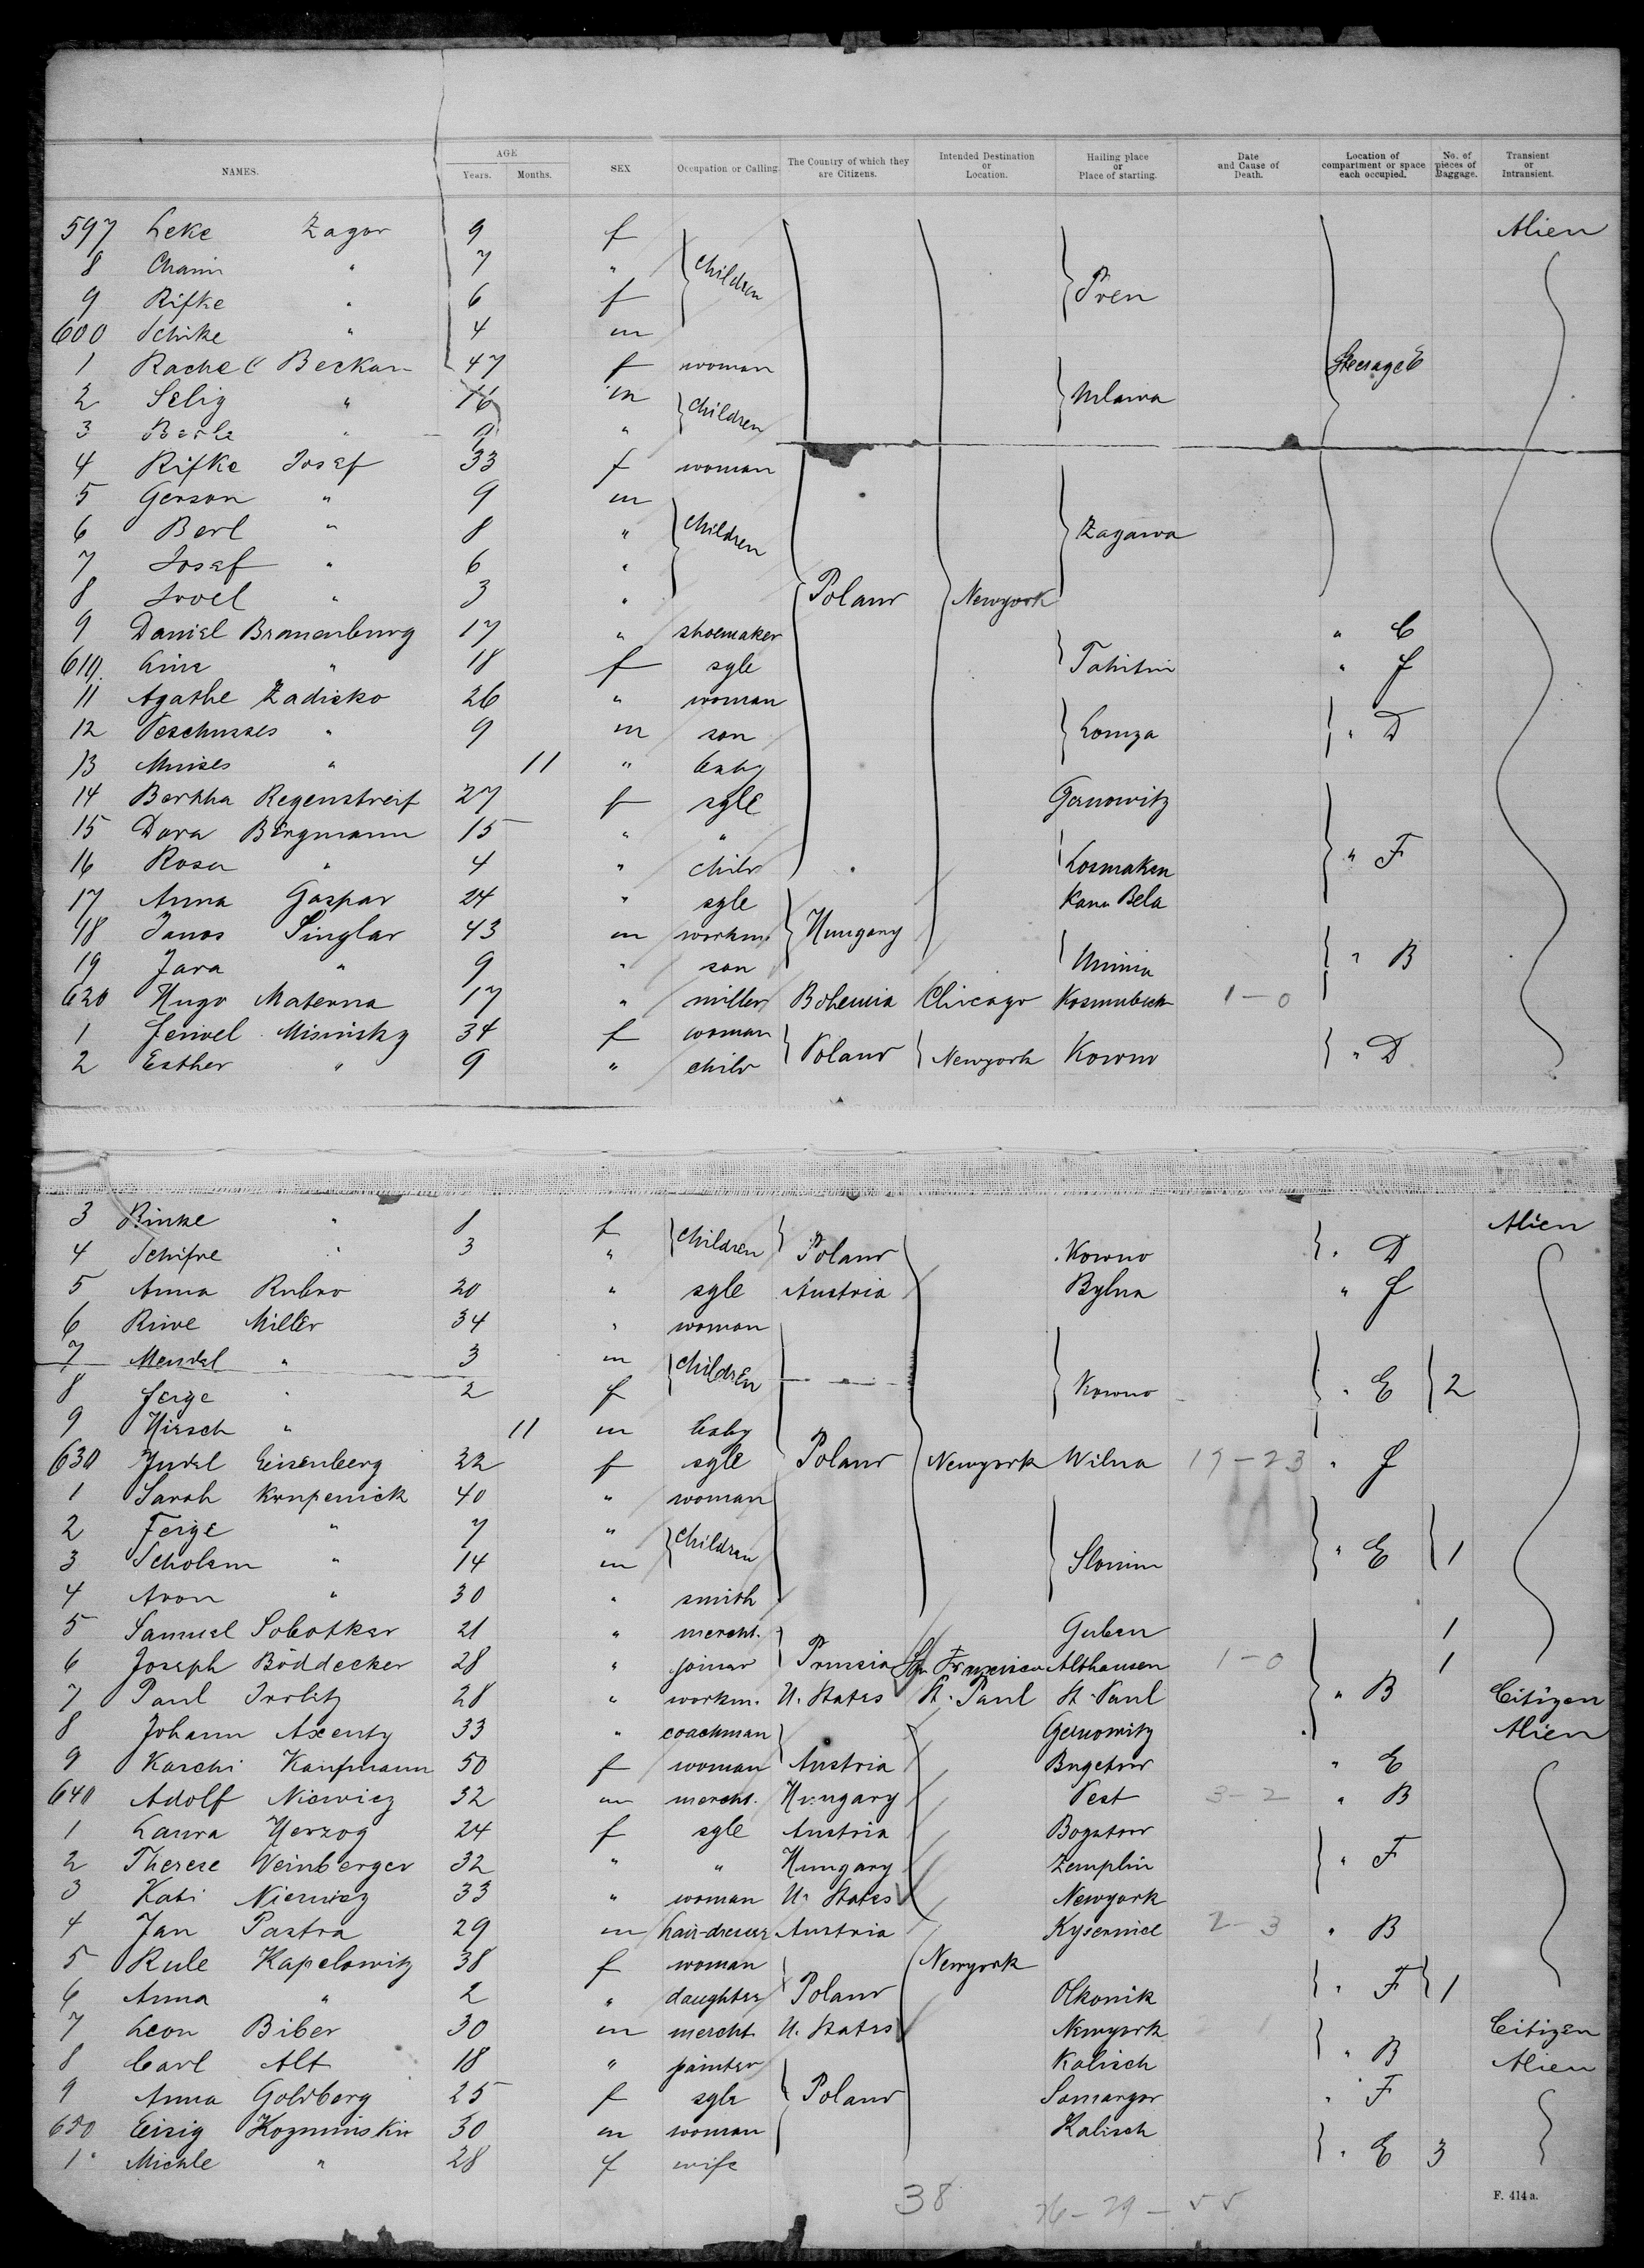 NAMES. AGE Years. Months. SEX Occupation or Calling. The Country of which they are Citizens. Intended Destination or Location. Hailing place or Place of starting. Date and Cause of Death. Location of compartment or space each occupied. No. of pieces of Baggage. Transient or Intransient.
597 Leke Zagor 9 f Alien
8 Chaim " 7 " children
9 Rifke " 6 f Pren
600 Schike " 4 m
1 Rachel Beckan 47 f woman Steerage E
2 Selig " 16 m children Mlawa
3 Berle " 9 "
4 Rifke Josef 33 f woman
5 Gerson " 9 m
6 Berl " 8 " children Zagawa
7 Josef " 6 "
8 Sroel " 3 " Poland Newyork
9 Daniel Brandenburg 17 " shoemaker " C
610 Line " 18 f sgle " J
11 Agathe Zadisko 26 " woman
12 " 9 m son Lomza " D
13 Muises " 11 " baby
14 Bertha Regenstreif 27 f sgle
15 Dora Bergmann 15 " "
16 Rosa " 4 " child " F
17 Anna Gaspar 24 " sgle Kana Bela
18 Janos Singlar 43 m workm. Hungary
19 Jara " 9 " son " B
620 Hugo Materna 17 " miller Bohemia Chicago 1-0
1 Misinsky 34 f woman
2 Esther " 9 " child Poland Newyork Kowno " D
3 Rinke " 8 f children Alien
4 Schifre " 3 " Poland Kowno " D
5 Anna Rubno 20 " sgle Austria Bylna " J
6 Riwe Miller 34 " woman
7 Mendel " 3 m children
8 Feige " 2 f Kowno " E 2
9 Hirsch " 11 m baby
630 Judel Eisenberg 22 f sgle Poland Newyork Wilna 19-23 " J
1 Sarah Krupenick 40 " woman
2 Feige " 7 " children
3 Scholem " 14 m Slonim " E 1
4 Aron " 30 " smith
5 Samuel Sobotker 21 " mercht. Guben 1
6 Joseph Böddecker 28 " joiner Prussia San Francisco Althausen 1-0 1
7 Paul Irrlitz 28 " workm. U. States St. Paul St. Paul " B Citizen
8 Johann Axenty 33 " coachman Alien
9 Karchi Kaufmann 50 f woman Austria " E
640 Adolf Niewicz 32 m mercht. Hungary Pest 3-2 " B
1 Laura Herzog 24 f sgle Austria
2 Therese Weinberger 32 " " Hungary Zemplin " F
3 Kati Niewicz 33 " woman U. States Newyork
4 Jan Pastra 29 m hair-dresser Austria 2-3 " B
5 Rule Kapelowitz 38 f woman Newyork
6 Anna " 2 " daughter Poland Olkonik " F 1
7 Leon Biber 30 m mercht. U. States Newyork Citizen
8 Carl Alt 18 " painter Kalisch " B Alien
9 Anna Goldberg 25 f sgle Poland " F
650 Eisig Kozminskir 30 m woman Kalisch
1 Michle " 28 f wife " E 3
38 26-29-55
F. 414 a.